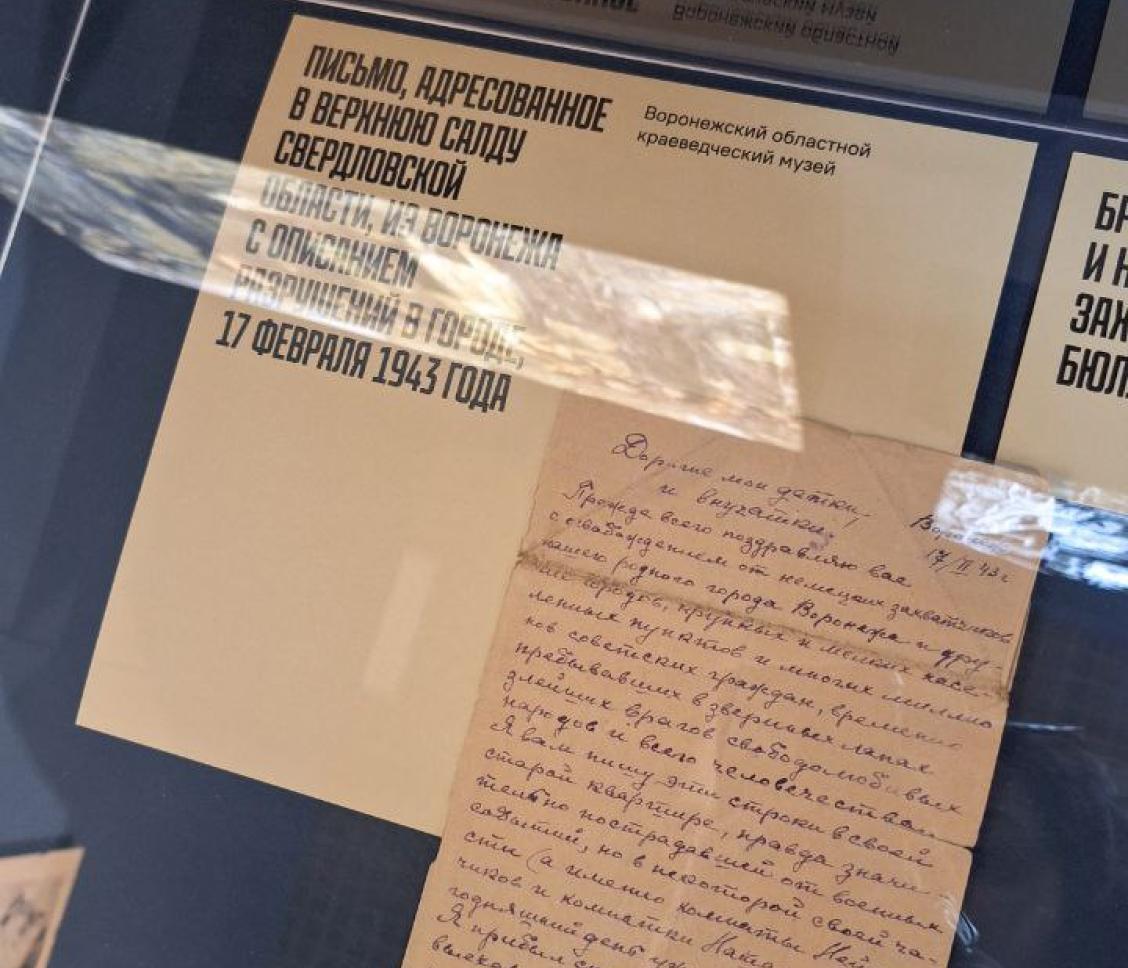 ПИСЬМО, АДРЕСОВАННОЕ
В ВЕРХНЮЮ САЛДУ
СВЕРДЛОВСКОЙ
ОБЛАСТИ, ИЗ ВОРОНЕЖА
С ОПИСАНИЕМ
РАЗРУШЕНИЙ В ГОРОДЕ,
17 ФЕВРАЛЯ 1943 ГОДА
Воронежский областной
краеведческий музей
БР
И Н
ЗАЖ
БЮЛ
Дорогие мои детки
и внучатки!
17/II 43 г
Прежде всего поздравляю вас
с освобождением от немецких захватчиков
нашего родного города Воронежа и дру-
гих городов, крупных и мелких насе-
ленных пунктов и многих миллио
нов советских граждан, временно
пребывавших в звериных лапах
злейших врагов свободолюбивых
народов и всего человечества
Я вам пишу эти строки в своей
старой квартире, правда значи-
тельно пострадавшей от военных
событий, но в некоторой своей ча-
сти (а именно комнаты
чиков и комнатки Ната
годняшний день
Я прибыл